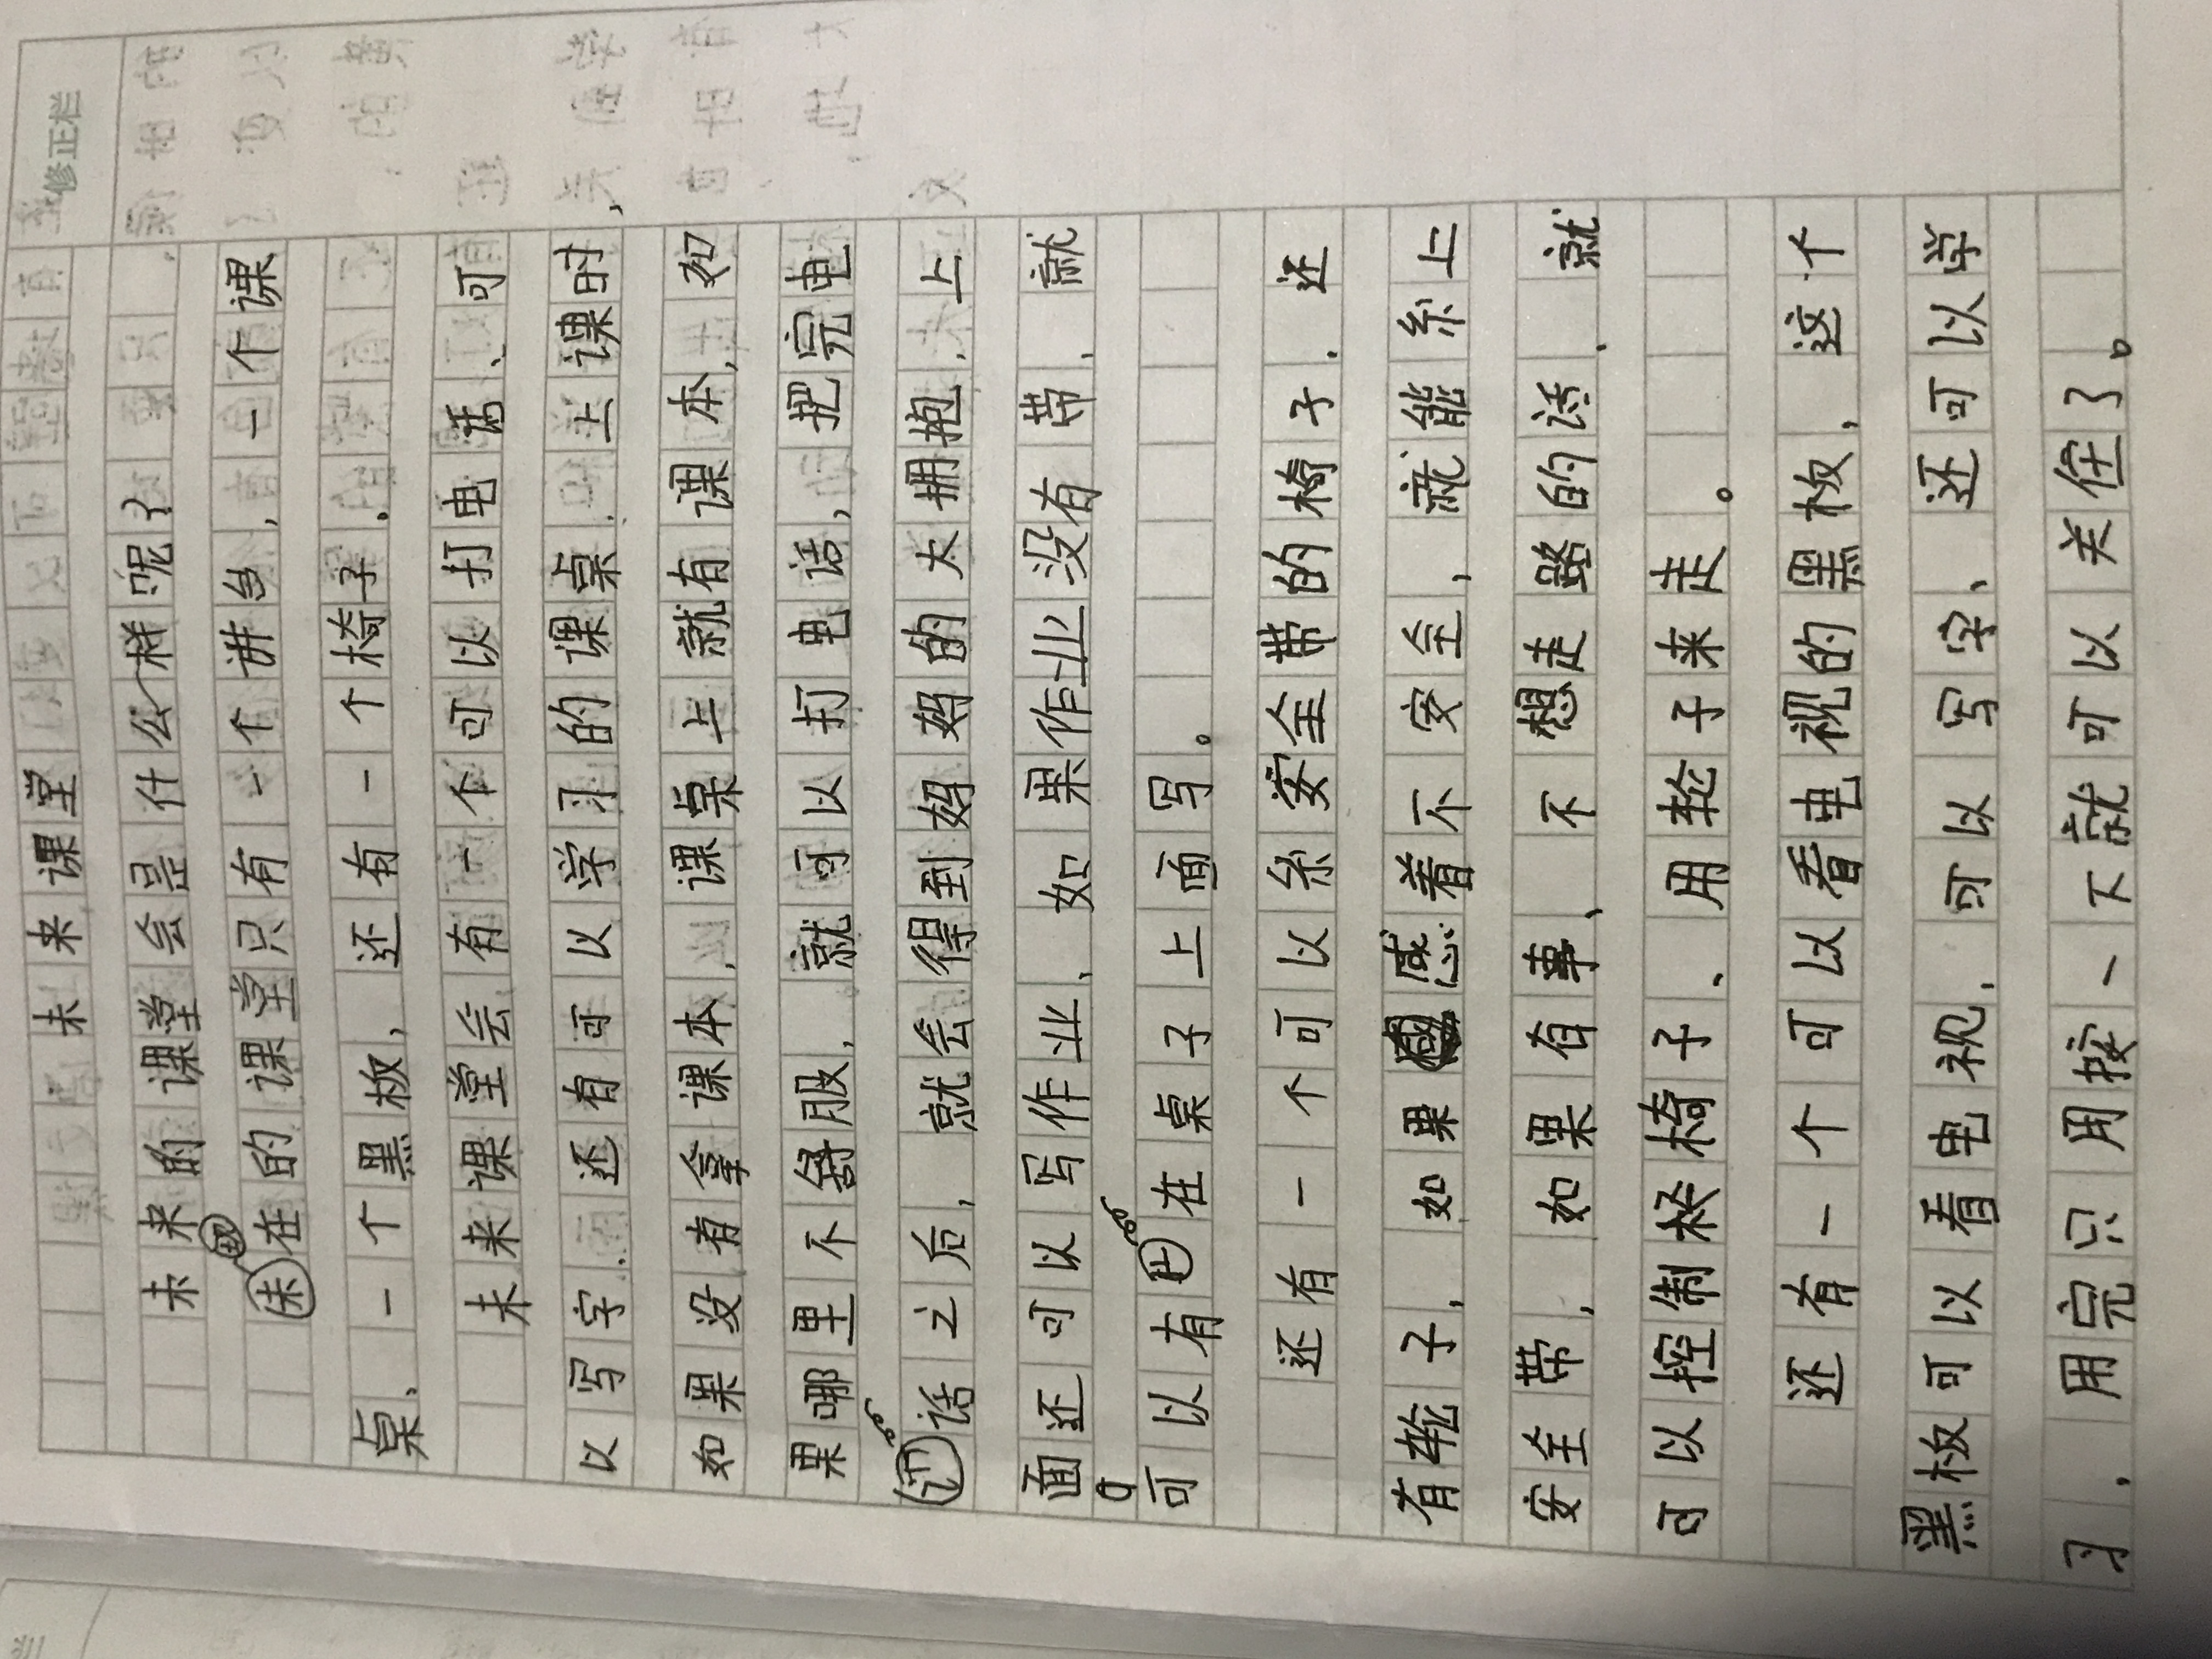 修正栏
未来课堂
未来的课堂会是什么样呢？
现在的课堂只有一个讲台，一个课
桌、一个黑板，还有一个椅子。
未来课堂会有一个可以打电话、可
以写字.还有可以学习的课桌.上课时，
如果没有拿课本，课桌上就有课本，如
果哪里不舒服，就可以打电话，把完电
话之后，就会得到妈妈的大拥抱，上
面还可以写作业、如果作业没有带，就
可以有在桌子上面写。
还有一个可以系安全带的椅子.还
有轮子，如果感着不安全，就能系上
安全带，如果有事、不想走路的话、就
可以控制椅子、用轮子来走。
还有一个可以看电视的黑板，这个
黑板可以看电视，可以写字、还可以学
习，用完只用按一下就可以关住了。